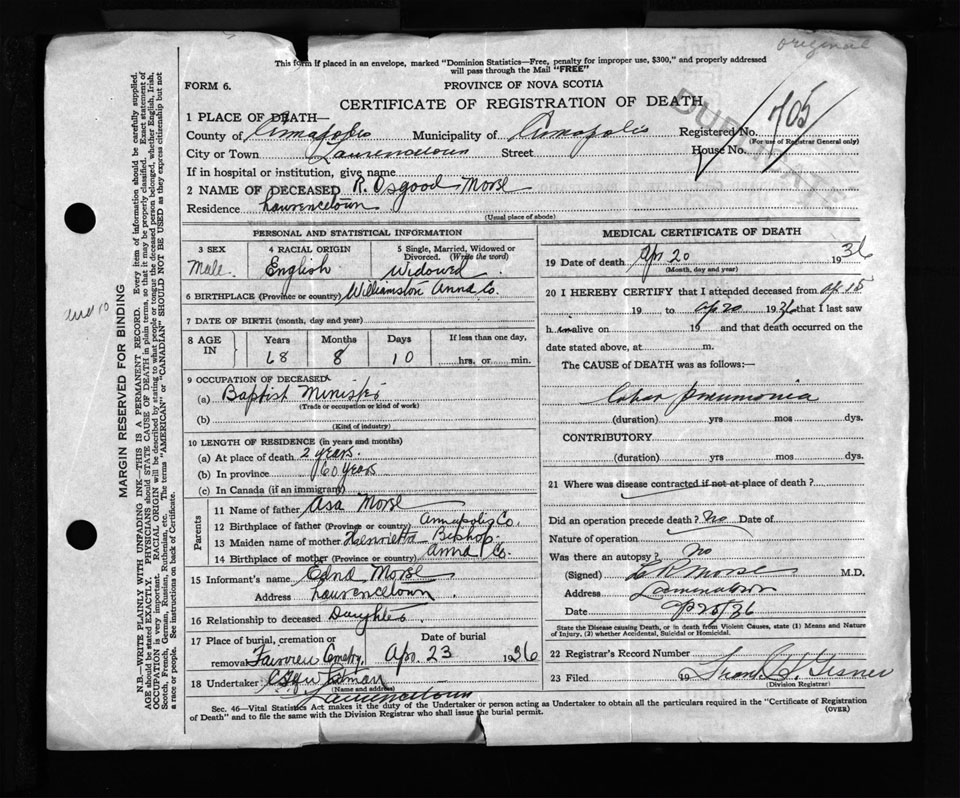 original
This form if placed in an envelope, marked "Dominion Statistics—Free, penalty for improper use, $300," and properly addressed
will pass through the Mail "FREE"
FORM 6.
PROVINCE OF NOVA SCOTIA
CERTIFICATE OF REGISTRATION OF DEATH
DUPLICATE
1 PLACE OF DEATH—
County of Annapolis Municipality of Annapolis Registered No. 705
(For use of Registrar General only)
City or Town Lawrencetown Street House No.
If in hospital or institution, give name
2 NAME OF DECEASED R. Osgood Morse
Residence Lawrencetown
(Usual place of abode)
PERSONAL AND STATISTICAL INFORMATION
3 SEX 4 RACIAL ORIGIN 5 Single, Married, Widowed or
Divorced. (Write the word)
Male. English Widowed
6 BIRTHPLACE (Province or country) Williamston Anna Co.
7 DATE OF BIRTH (month, day and year)
8 AGE IN Years Months Days If less than one day,
68 8 10 hrs. or min.
9 OCCUPATION OF DECEASED
(a) Baptist Minister
(Trade or occupation or kind of work)
(b)
(Kind of industry)
10 LENGTH OF RESIDENCE (in years and months)
(a) At place of death 2 years.
(b) In province 60 years
(c) In Canada (if an immigrant)
Parents
11 Name of father Asa Morse
12 Birthplace of father (Province or country) Annapolis Co.
13 Maiden name of mother Henrietta Bishop
14 Birthplace of mother (Province or country) Anna Co.
15 Informant's name Edna Morse
Address Lawrencetown
16 Relationship to deceased Daughter
17 Place of burial, cremation or Date of burial
removal Fairview Cemetry. Apr. 23 1936
18 Undertaker
(Name and address)
Lawrencetown
MEDICAL CERTIFICATE OF DEATH
19 Date of death Apr 20 1936
(Month, day and year)
20 I HEREBY CERTIFY that I attended deceased from Ap. 15
19 to Ap 20 1936 that I last saw
h im alive on 19 and that death occurred on the
date stated above, at m.
The CAUSE of DEATH was as follows:—
Lobar pneumonia
(duration) yrs mos dys.
CONTRIBUTORY
(duration) yrs. mos. dys.
21 Where was disease contracted if not at place of death?
Did an operation precede death? No Date of
Nature of operation
Was there an autopsy? No
(Signed) Morse M.D.
Address
Date
State the Disease causing Death, or in death from Violent Causes, state (1) Means and Nature
of Injury, (2) whether Accidental, Suicidal or Homicidal.
22 Registrar's Record Number
23 Filed 19 Frank H. Gesner
(Division Registrar)
Sec. 46—Vital Statistics Act makes it the duty of the Undertaker or person acting as Undertaker to obtain all the particulars required in the "Certificate of Registration
of Death" and to file the same with the Division Registrar who shall issue the burial permit.
(OVER)
MARGIN RESERVED FOR BINDING
N.B.—WRITE PLAINLY WITH UNFADING INK—THIS IS A PERMANENT RECORD. Every item of information should be carefully supplied.
AGE should be stated EXACTLY. PHYSICIANS should STATE CAUSE OF DEATH in plain terms, so that it may be properly classified. Exact statement of
OCCUPATION is very important. RACIAL ORIGIN will be described by stating to what people or tongue the deceased person belonged, whether English, Irish,
Scotch, French, German, Russian, Ruthenian, etc. The terms "AMERICAN" or "CANADIAN" SHOULD NOT BE USED as they express citizenship but not
a race or people. See instructions on back of Certificate.